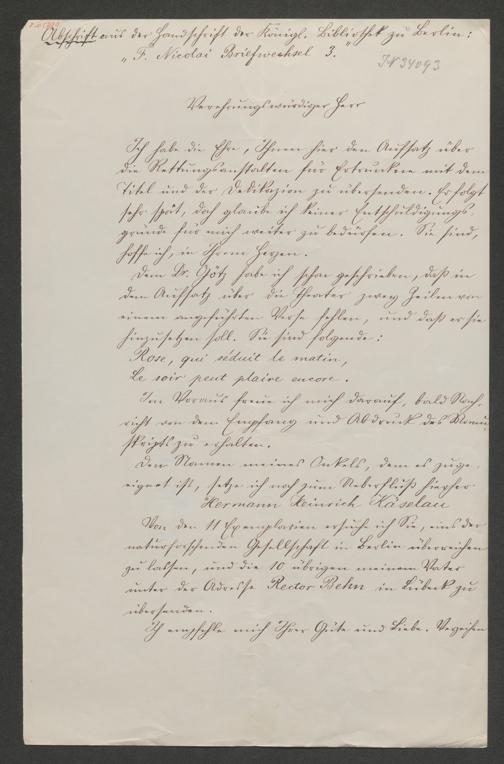 Abschrift aus der Handschrift der Königl. Bibliothek zu Berlin:
„F. Nicolai Briefwechsel 3."
IN 34093
Verehrungswürdiger Herr
Ich habe die Ehre, Ihnen hier den Aufsatz über
die Rettungsanstalten für Ertrunkne mit dem
Titel und der Dedikazion zu übersenden. Er folgt
sehr spät, doch glaube ich keiner Entschuldigungs-
gründe für mich weiter zu bedürfen. Sie sind,
hoffe ich, in Ihrem Herzen.
Dem Dr. Götz habe ich schon geschrieben, daß in
dem Aufsatz über die Theater zwey Zeilen von
einem angeführten Verse fehlen, und daß er sie
hinzusetzen soll. Sie sind folgende:
Rose, qui séduit le matin,
Le soir peut plaire encore.
Im Voraus freue ich mich darauf, bald Nach-
richt von dem Empfang und Abdruck des Manu-
skripts zu erhalten.
Den Namen meines Onkels, dem es zuge-
eignet ist, setze ich noch zum Ueberfluß hierher
Hermann Heinrich Käselau
Von den 11 Exemplarien ersuche ich Sie, eins der
naturforschenden Gesellschaft in Berlin überreichen
zu lassen, und die 10 übrigen meinem Vater
unter der Adresse Rector Behn in Lübeck zu
übersenden.
Ich empfehle mich Ihrer Güte und Liebe. Verzeihen